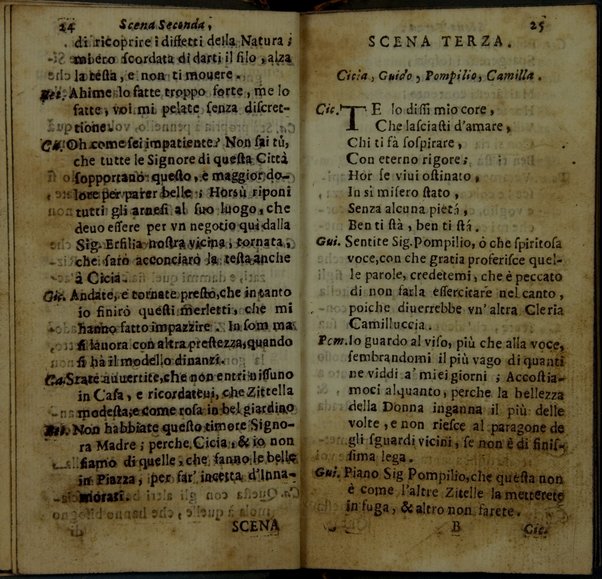 24 Scena Seconda,
di ricoprire i diffetti della Natura;
mi ero scordata di darti il filo, alza
la testa, e non ti mouere.
Bei. Ahime lo fatte troppo forte, me lo
fatte, voi mi pelate senza discret-
tione.
Ca. Oh come sei impatiente! Non sai tù,
che tutte le Signore di questa Città
sopportanò questo, e maggior do-
lore per parer belle; Horsù riponi
tutti gli arnesi al suo luogo, che
deuo essere per vn negotio qui dalla
Sig. Ersilia nostra vicina, tornata,
che sarò acconciarò la testa anche
à Cicia.
Cic. Andate, e tornate presto, che in tanto
io finirò questi merletti, che mi
hanno fatto impazzire. In som ma
si lauora con altra prestezza, quando
si hà il modello dinanzi.
Ca. State auuertite, che non entri nissuno
in Casa, e ricordateui, che Zittella
modesta, e come rosa in bel giardino
Bei. Non habbiate questo timore Signo-
ra Madre; perche Cicia, & io non
siamo di quelle, che fanno le belle
in Piazza, per far' incetta d'Inna-
morati.
SCENA
25
SCENA TERZA.
Cicia, Guido, Pompilio, Camilla.
Cic. TE lo dissi mio core,
Che lasciasti d'amare,
Chi ti fà sospirare,
Con eterno rigore;
Hor se viui ostinato,
In sì misero stato,
Senza alcuna pietá,
Ben ti stà, ben ti stá.
Gui. Sentite Sig. Pompilio, ò che spiritosa
voce, con che gratia proferisce quel-
le parole, credetemi, che è peccato
di non farla essercitare nel canto,
poiche diuerrebbe vn'altra Cleria
Camilluccia.
Pom. Io guardo al viso, più che alla voce,
sembrandomi il più vago di quanti
ne viddi a' miei giorni; Accostia-
moci alquanto, perche la bellezza
della Donna inganna il più delle
volte, e non riesce al paragone de
gli sguardi vicini, se non è di finis-
sima lega.
Gui. Piano Sig Pompilio, che questa non
è come l'altre Zitelle la metterete
in fuga, & altro non farete.
B Cic.